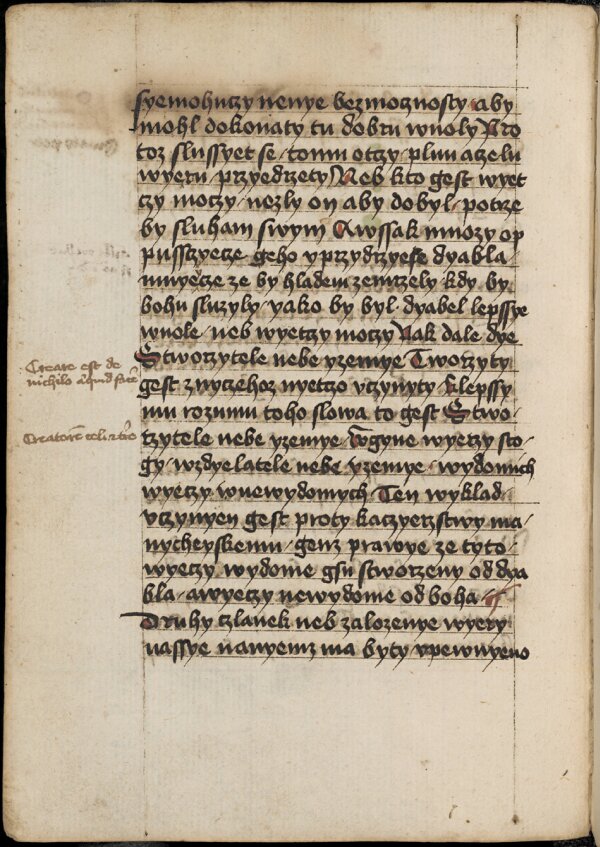 syemohuczy nenye bezmocznosty aby
mohl dokonaty tu dobru wuoly Pro
toz slussyet se tomu otczy plnu aczelu
wyeru przyedrzety Neb kto gest wyet
czy moczy nezly on aby dobyl potrze
by sluham swym Awssak mnozy op
pussczyecze geho yprzydrzyese dyabla
mnyecze ze by hladem zemrzely kdy by
bohu sluzyly yako by byl dyabel lepssye
wuole neb wyetczy moczy Dale dye
Stworzytele nebe yzemye Tworzyty
gest znyczehoz nyeczo vczynyty Klepssy
mu rozumu toho slowa to gest Stwo
rzytele nebe yzemye Wgyne wyeczy sto
gy wzdyelatele nebe yzemye wydomich
Creare est de
nichilo aliquid facere
Creatorem celi et terre
wyeczy wnewydomych Ten wyklad
vczynyen gest proty kaczyerzstwy ma
nycheyskemu genz prawye ze tyto
wyeczy wydome gsu stworzeny od dya
bla awyeczy newydome od boha
Druhy czlanek neb zalozenye wyery
nassye nanyemz ma byty vpewnyeno